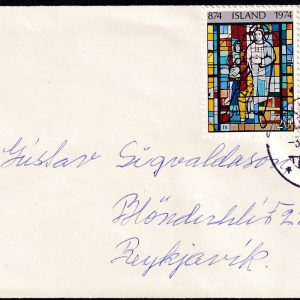 874 ÍSLAND 1974
Gústav Sigvaldason
Blönduhlíð 2
Reykjavík.